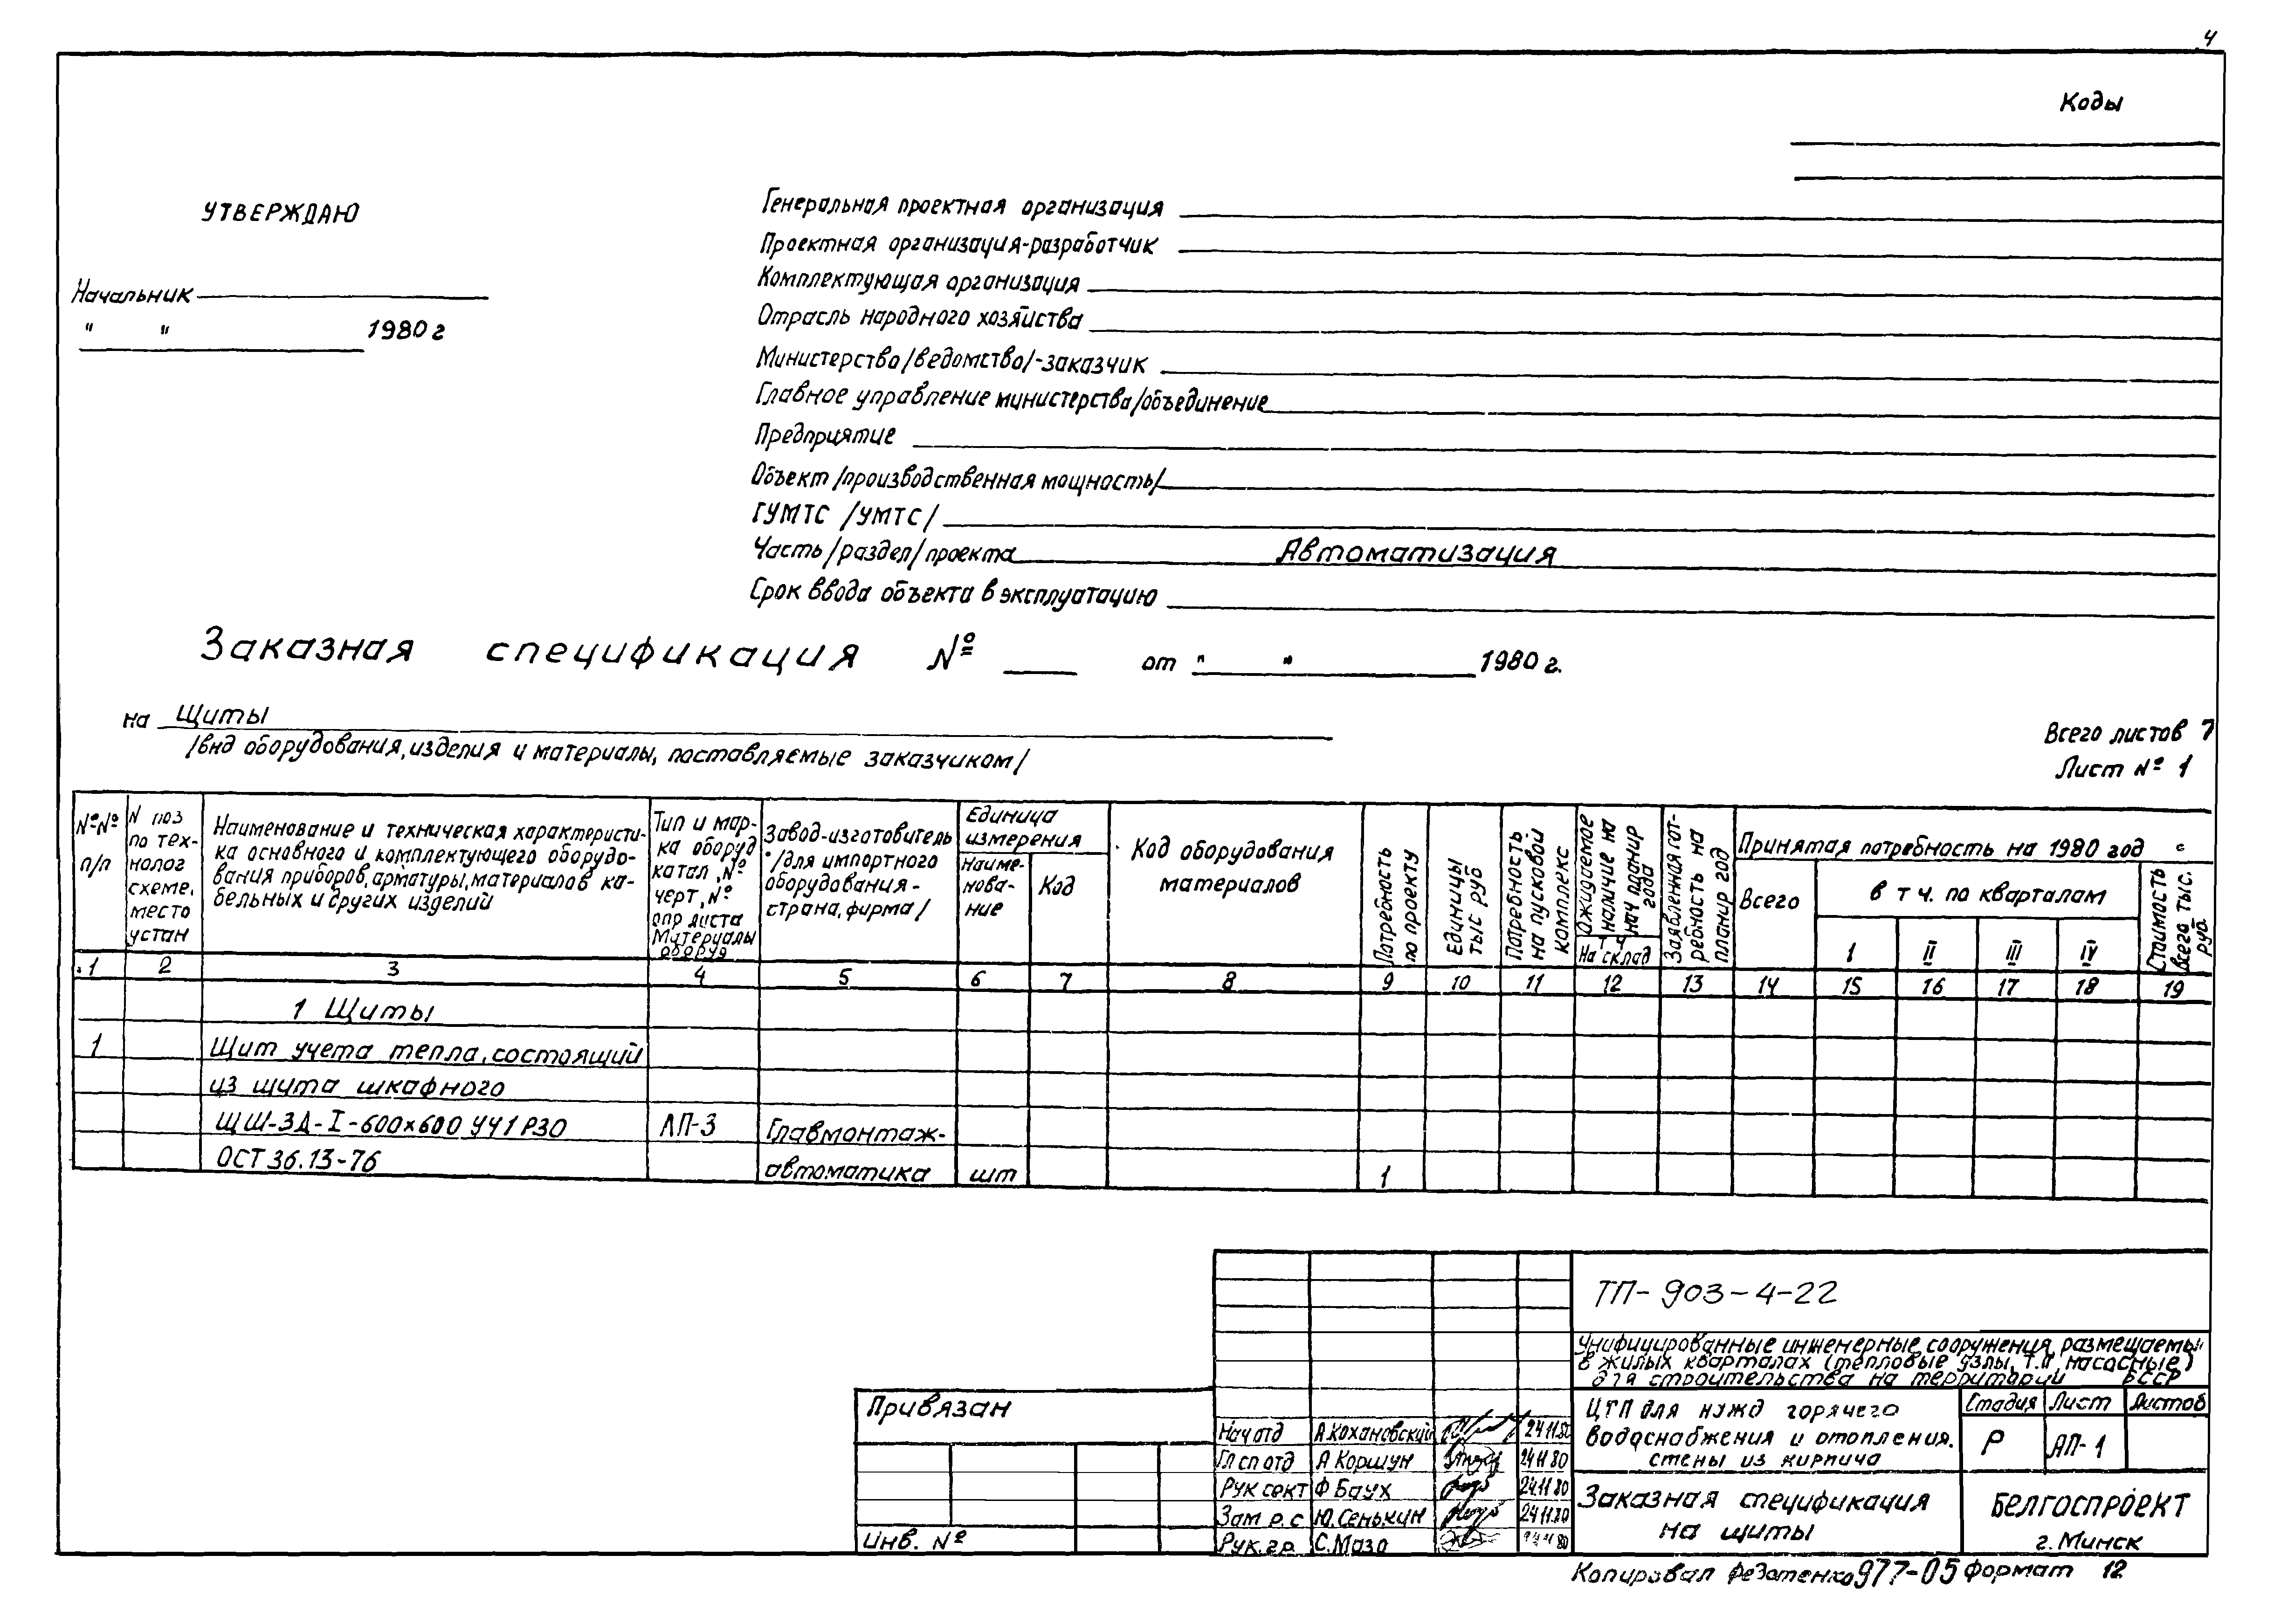 4
Коды
УТВЕРЖДАЮ
Начальник
" " 1980 г
Генеральная проектная организация
Проектная организация-разработчик
Комплектующая организация
Отрасль народного хозяйства
Министерство/ведомство/-заказчик
Главное управление министерства/объединение
Предприятие
Объект /производственная мощность/
ГУМТС /УМТС/
Часть/раздел/проекта Автоматизация
Срок ввода объекта в эксплуатацию
Заказная спецификация № от " " 1980 г.
на Щиты
/вид оборудования, изделия и материалы, поставляемые заказчиком/
Всего листов 7
Лист № 1
№№ п/п
N поз по тех-нолог схеме, место устан
Наименование и техническая характеристи-
ка основного и комплектующего оборудо-
вания приборов, арматуры, материалов ка-
бельных и других изделий
Тип и мар-
ка оборуд
катал, №
черт, №
опр листа
Материалы
оборуд
Завод-изготовитель
/для импортного
оборудования -
страна, фирма/
Единица
измерения
Наиме-
нова-
ние
Код
Код оборудования
материалов
Потребность
по проекту
Единицы
тыс руб
Потребность
на пусковой
комплекс
Ожидаемое
наличие на
нач планир
года
т ч
На склад
Заявленная пот-
ребность на
планир год
Принятая потребность на 1980 год
Всего
в т ч. по кварталам
1 II III IV
Стоимость
всего тыс.
руб
1 2 3 4 5 6 7 8 9 10 11 12 13 14 15 16 17 18 19
1 Щиты
1 Щит учета тепла, состоящий
из щита шкафного
ЩШ-ЗД-I-600×600 УЧ1Р30 АП-3 Главмонтаж-
ОСТ 36.13-76 автоматика шт 1
ТП-903-4-22
Унифицированные инженерные сооружения, размещаемы
в жилых кварталах (тепловые узлы, т.п, насосные)
для строительства на территории БССР
Привязан
Инв. №
Нач отд А Кохановский 24 11 80
Гл сп отд А Коршун 24 11 80
Рук сект Ф Баух 24.11 80
Зам р. с Ю. Сенькин 24 11.80
Рук. гр. С. Мазо
ЦТП для нужд горячего
водоснабжения и отопления.
стены из кирпича
Стадия Лист Листов
Р АП-1
Заказная спецификация
на щиты
БЕЛГОСПРОЕКТ
г. Минск
Копировал Федотенко 977-05 Формат 12